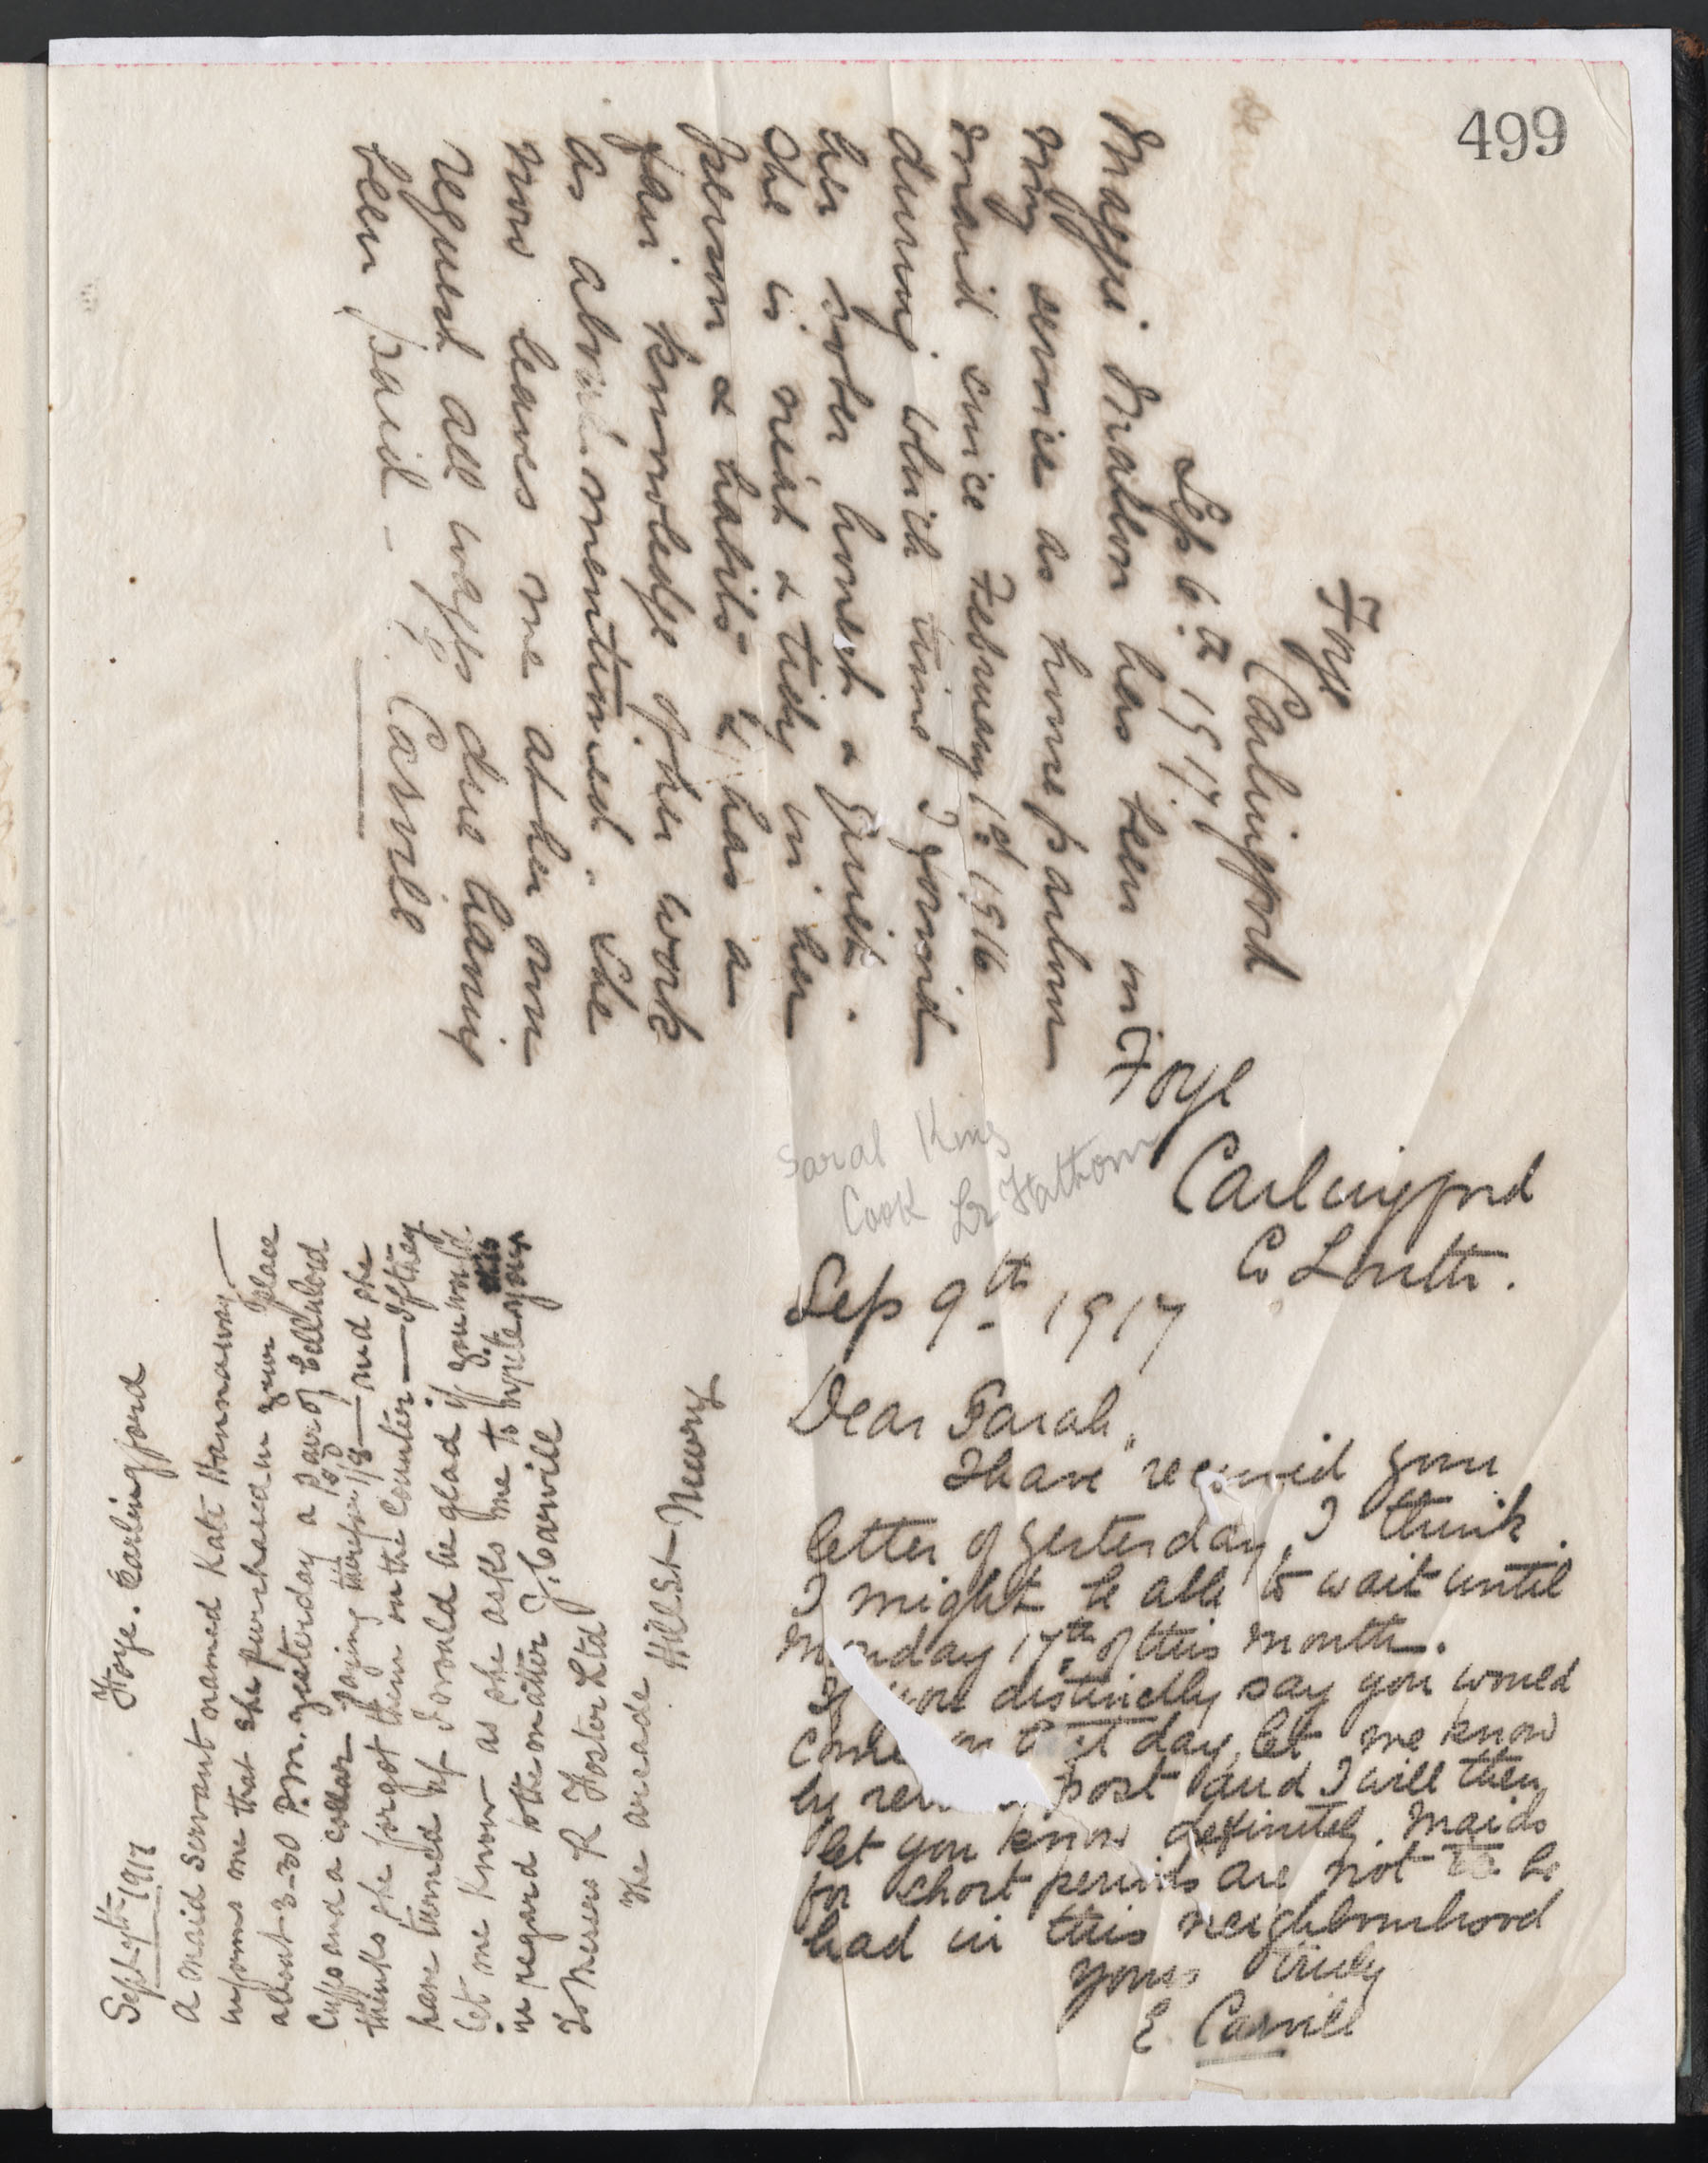 499
Foye
Carlingford
Sep 6th 1917
Maggie Mallon has been in
my service as house parlour
maid since February 1st 1916
during which time I found
her sober honest & quiet.
She is neat & tidy in her
person & habits & has a
fair knowledge of her work
as abovementioned. She
now leaves me at her own
request all wages due having
been paid - E. Carvill
Foye
Carlingford
Co Louth.
Sarah King
Cook
Sep 9th 1917
Dear Sarah,
I have received your
letter of yesterday, I think
I might be able to wait until
Monday 17th of this month.
If you distinctly say you would
come on that day, let me know
by return post and I will then
let you know definitely. Maids
for short periods are not to be
had in this neighbourhood
yours truly
E. Carvill
Foye. Carlingford
Sept 9th 1917
A maid servant named Kate Hannaway
informs me that she purchased in your place
about 3-30 P.M. yesterday a pair of Celluloid
Cuffs and a collar paying therefor 1/8 and she
thinks she forgot them on the Counter — If they
have turned up I would be glad if you would
let me know as she asks me to write you
in regard to the matter J. Carvill
To Messrs R Foster Ltd
The arcade Hill St Newry